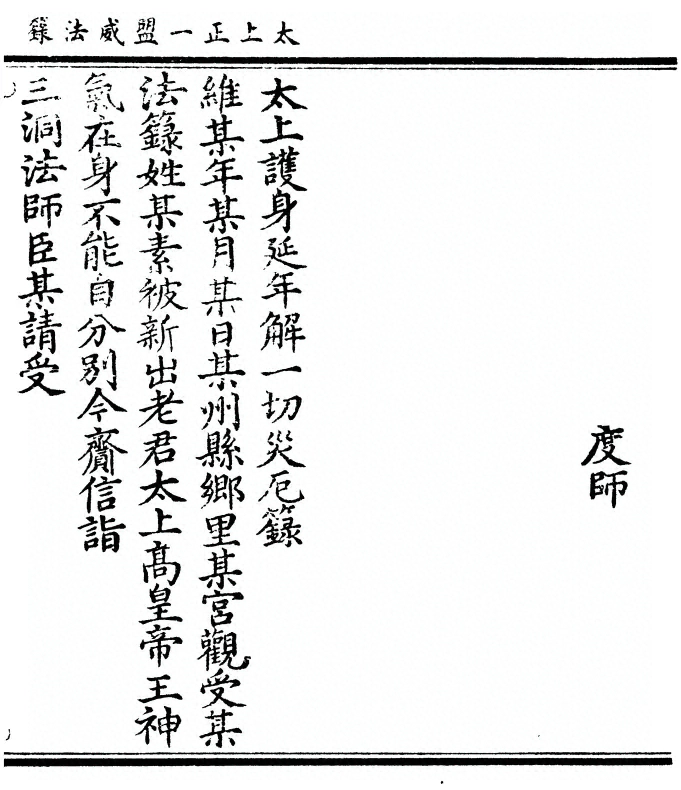 太上正一盟威法籙
度師
太上護身延年解一切災厄籙
維某年某月某日某州縣鄉里某宮觀受某
法籙姓某素被新出老君太上高皇帝王神
氣在身不能自分別今齎信詣
三洞法師臣某請受